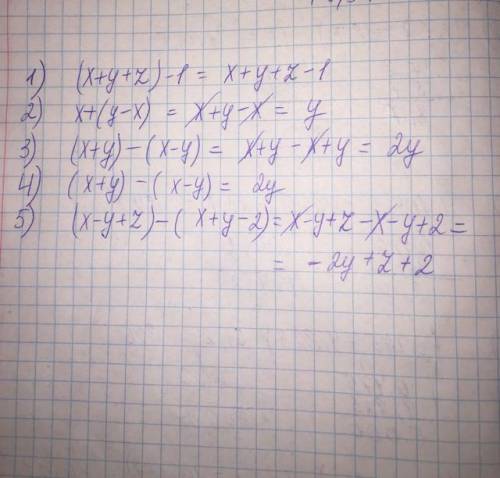 1) (x+y+z)-1 = x+y+z-1
2) x+(y-x) = x+y-x = y
3) (x+y)-(x-y) = x+y-x+y = 2y
4) (x+y)-(x-y) = 2y
5) (x-y+z)-(x+y-2)=x-y+z-x-y+2=
= -2y+z+2